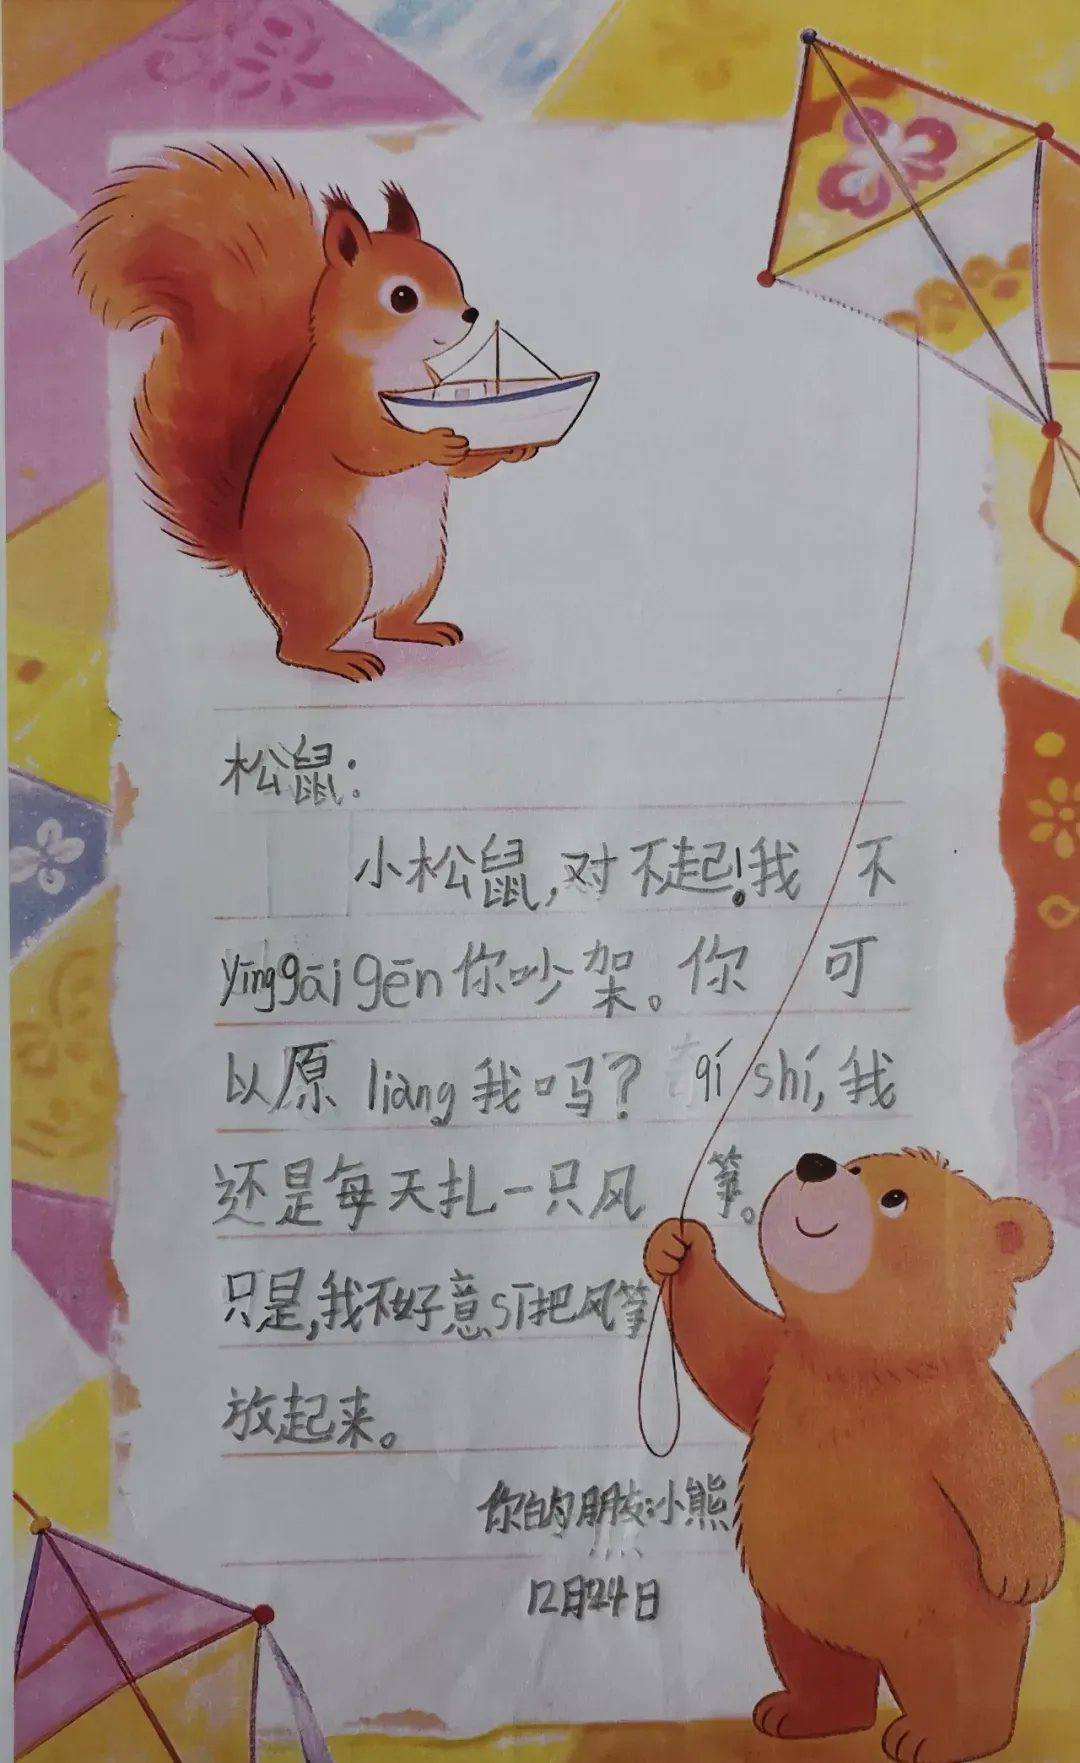 松鼠：
小松鼠,对不起!我不
yīnggāi gēn你吵架。你可
以原liàng我吗？qí shí,我
还是每天扎一只风筝。
只是,我不好意sī把风筝
放起来。
你的朋友:小熊
12月24日